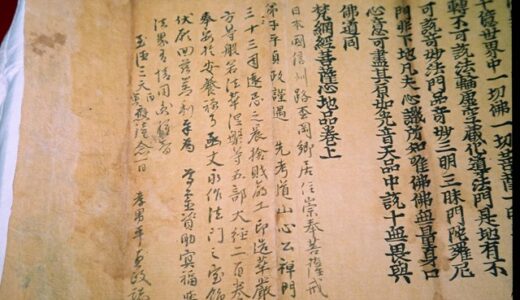 億世界中一切佛一切菩薩一時
轉不可說法輪虛空藏化導法門是地有不
可說奇妙法門品奇妙三明三昧門陀羅尼
門非下地凡夫心識所知唯佛佛無量身口
心意可盡其原如光音天品中說十無畏與
佛道同
梵網經菩薩心地品卷上
日本國信州路岡鄉居住崇奉菩薩戒
弟子平貞政謹遇 先考道山心公禪門
三十三周遠忌之辰捨工印造華嚴
方等般若法華涅槃等五部大經二百卷
奉安於安養禪寺永作法門之寶
伏願四恩資助冥福
法界有情同
至德三一日 孝男平貞政